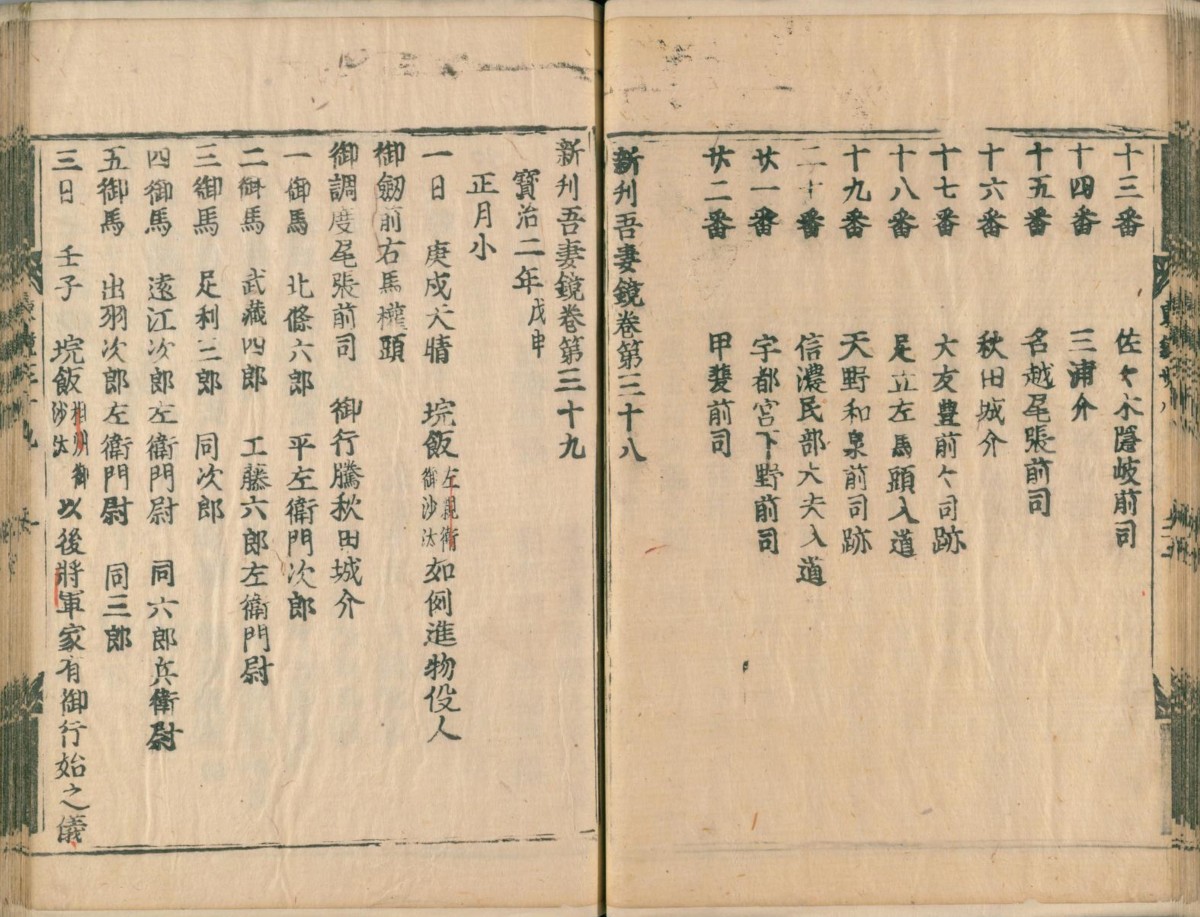 十三番 佐々木隱岐前司
十四番 三浦介
十五番 名越尾張前司
十六番 秋田城介
十七番 大友豊前々司跡
十八番 足立左馬頭入道
十九番 天野和泉前司跡
二十番 信濃民部大夫入道
廿一番 宇都宮下野前司
廿二番 甲斐前司
新刋吾妻鏡卷第三十八
新刋吾妻鏡卷第三十九
寶治二年戊申
正月小
一日 庚戍天晴 垸飯左親衛御沙汰如例進物役人
御劔前右馬權頭
御調度尾張前司 御行騰秋田城介
一御馬 北條六郎 平左衛門次郎
二御馬 武藏四郎 工藤六郎左衛門尉
三御馬 足利三郎 同次郎
四御馬 遠江次郎左衛門尉 同六郎兵衛尉
五御馬 出羽次郎左衛門尉 同三郎
三日 壬子 垸飯相州御沙汰以後將軍家有御行始之儀